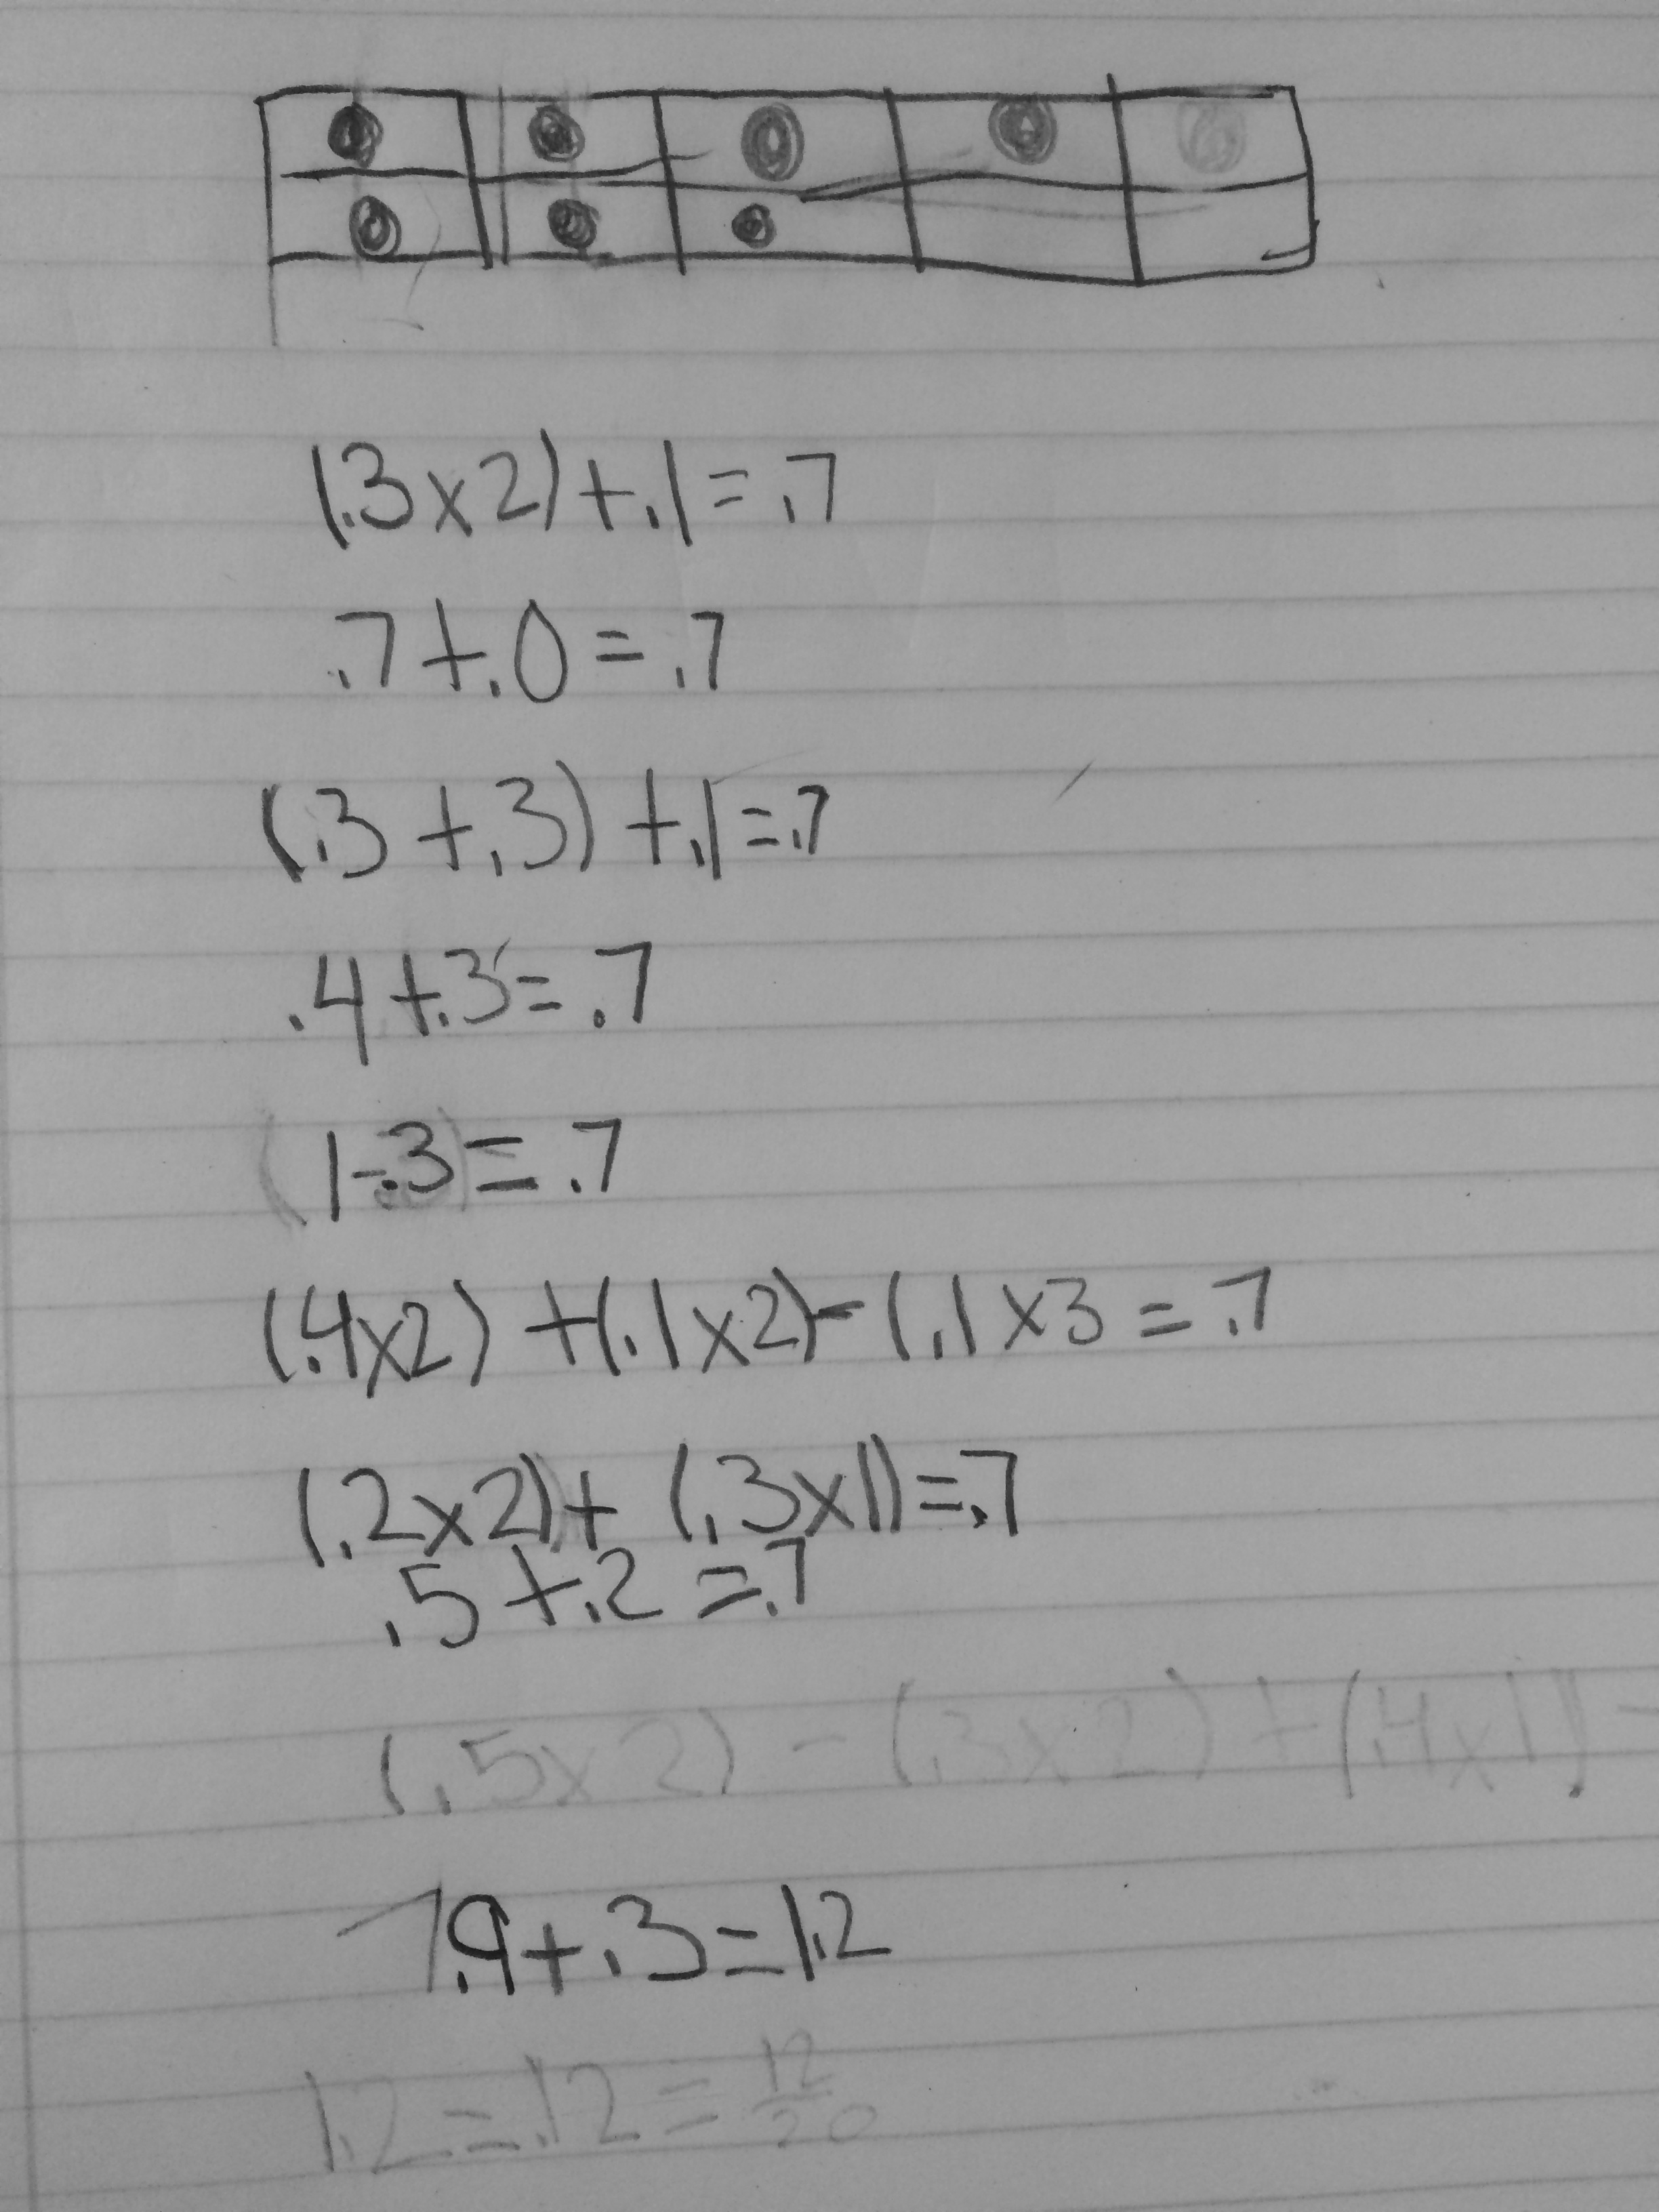 (.3x2)+.1=.7
.7+.0=.7
(.3+.3)+.1=.7
.4+.3=.7
(1-.3)=.7
(.4x2)+(.1x2)-(.1x3=.7
(.2x2)+(.3x1)=.7
.5+.2=.7
(.5x2)-(.3x2)+(.4x1)-
.9+.3=1.2
1.2=.12=12/20